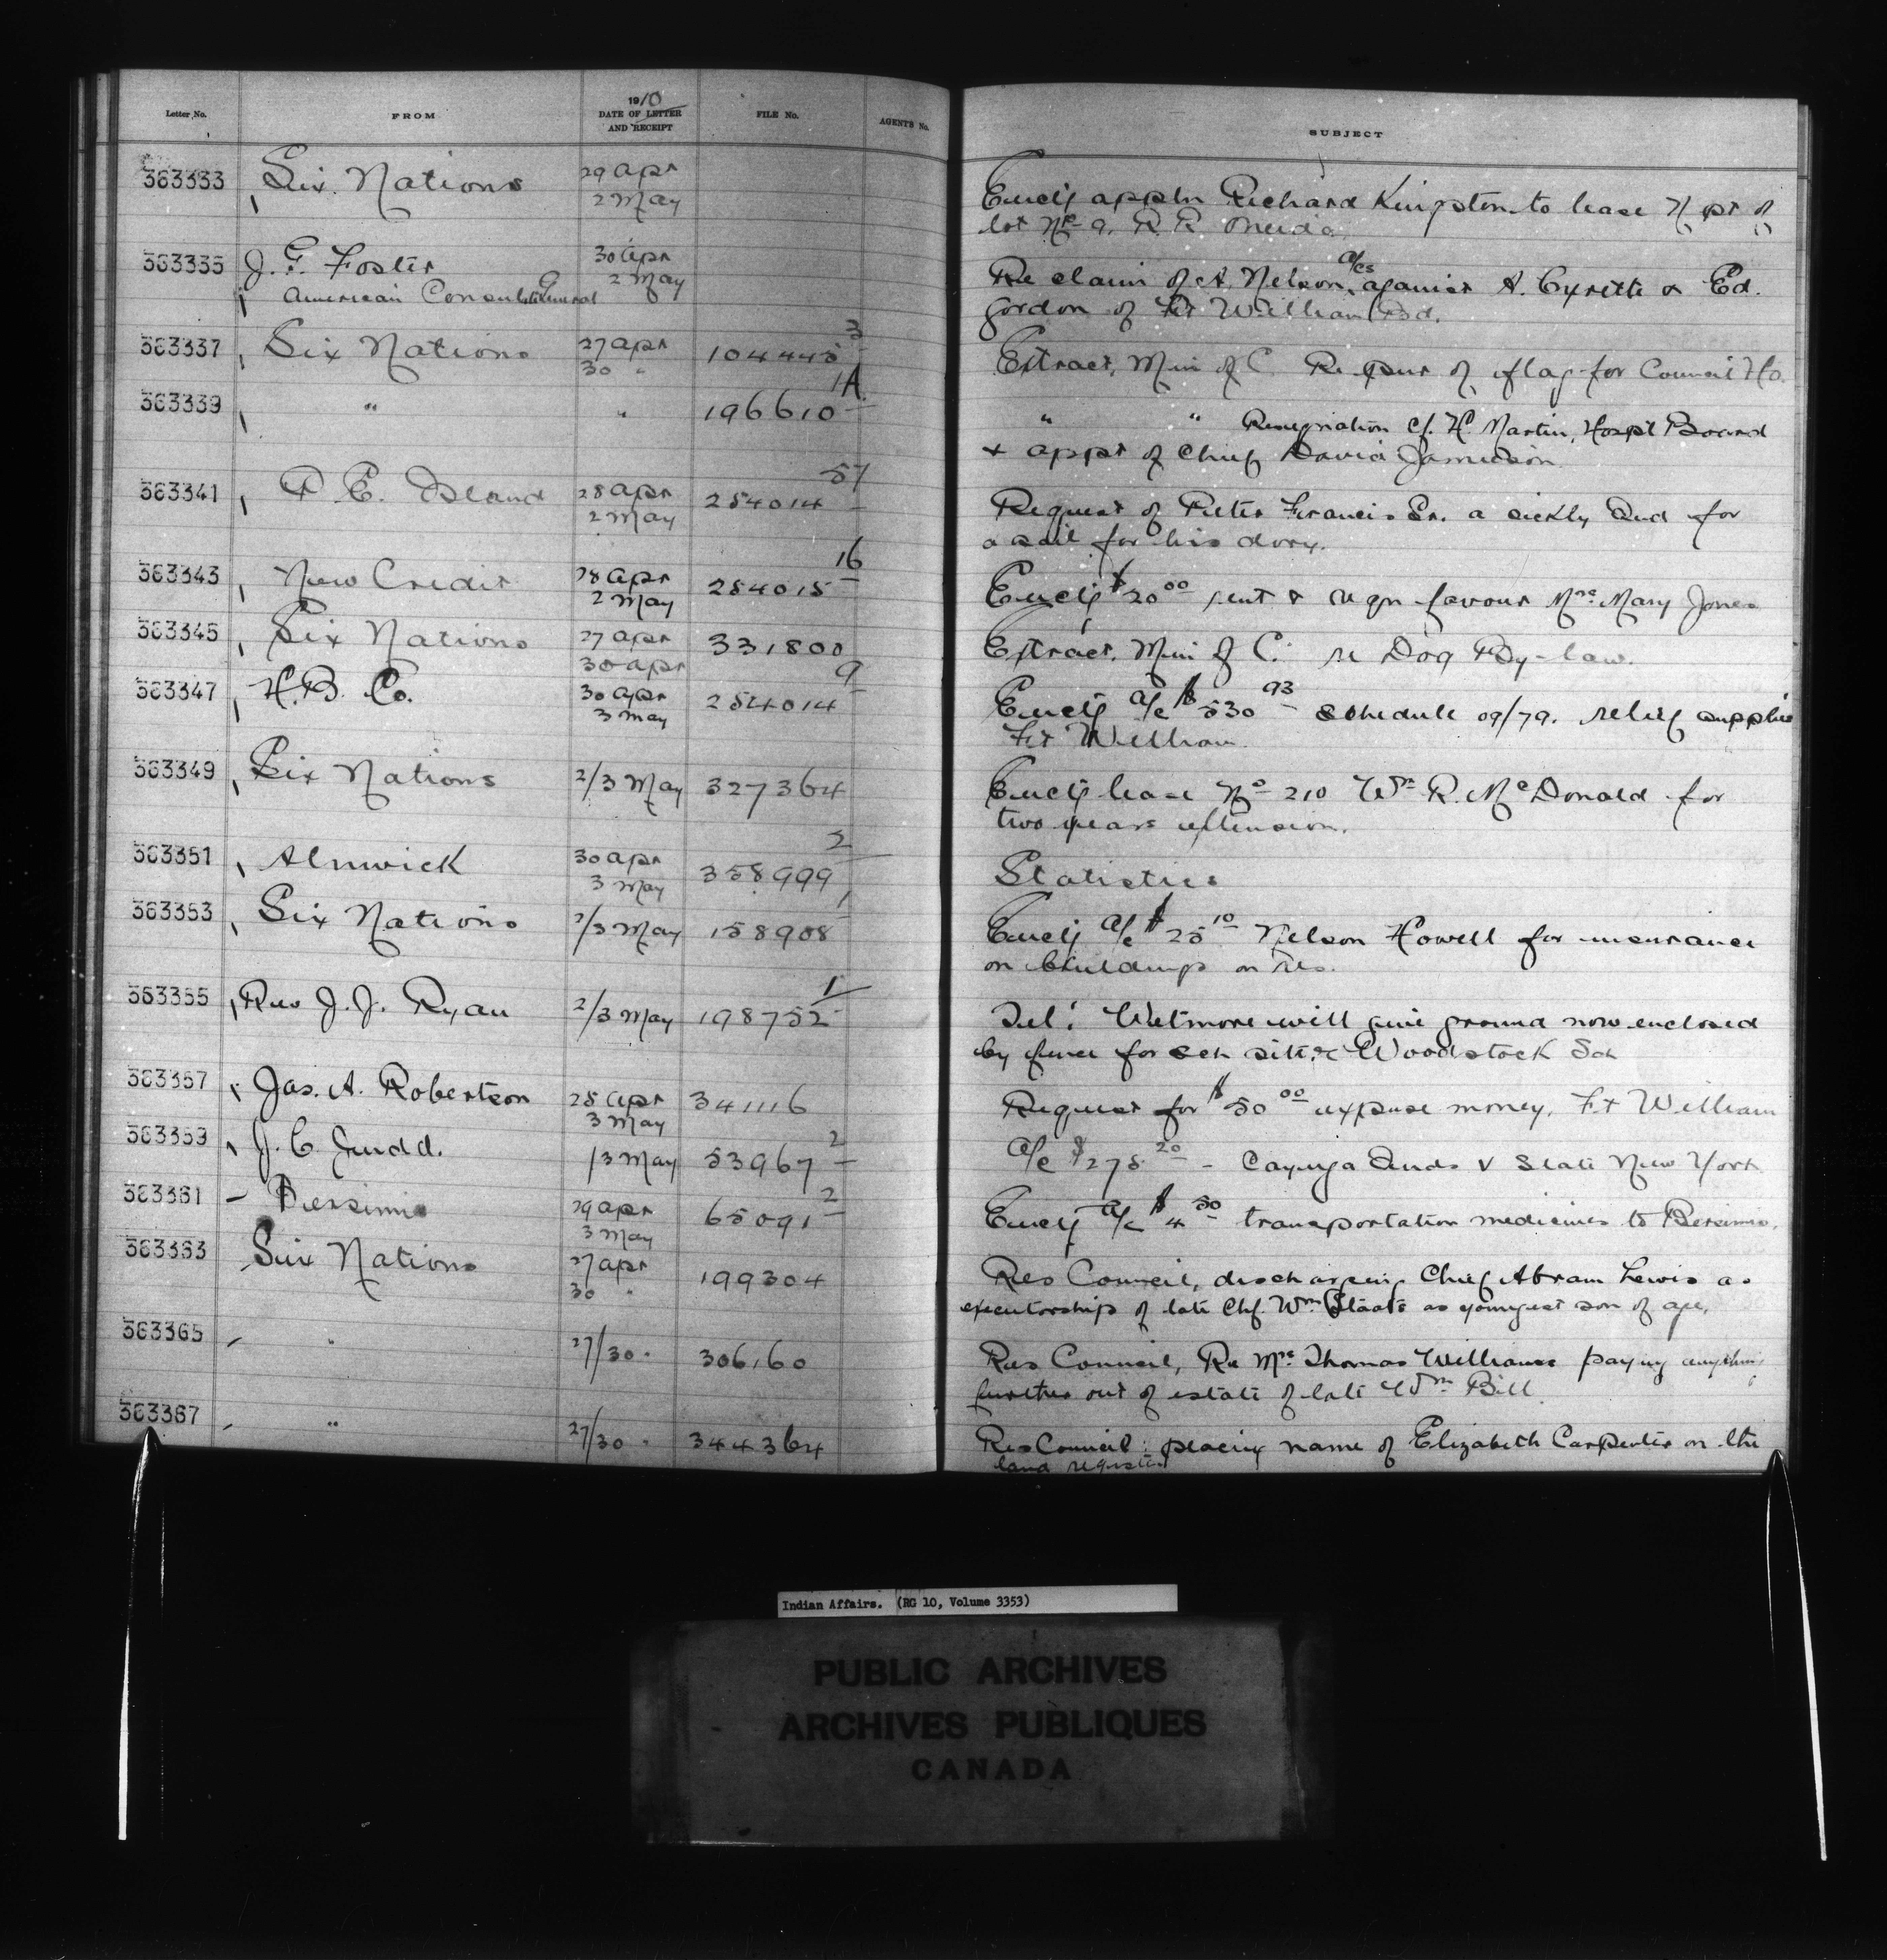 Letter No. FROM 1910 DATE OF LETTER AND RECEIPT FILE No. AGENTS No. SUBJECT
363333 Six Nations 29 Apr 2 May Encl'g appln Richard Kingston to lease N pt of
lot No 9. R. R. Oneida
363335 J. G. Foster 30 Apr 2 May Re claim of A. Nelson a/cs against A. Cyrette & Ed.
American Consul General Gordon of Ft William Bd.
363337 Six Nations 27 Apr 30 " 104445 3 Extract, Min of C. Re pur of flag for Council Ho.
363339 " " 196610 1A " " Resignation Cf. H. Martin, Hospt Board
& appt of Chief David Jamieson
363341 P. E. Island 28 Apr 2 May 254014 57 Request of Peter Francis Sr. a sickly Ind for
a sail for his dory.
363343 New Credit 28 Apr 2 May 254015 16 Encl'g $20.00 rent & reqn favour Mrs Mary Jones
363345 Six Nations 27 Apr 30 Apr 331800 Extract, Min of C. re Dog By-law.
363347 H. B. Co. 30 Apr 3 May 254014 9 Encl'g a/c $530 93 schedule 09/79. relief supplies
Ft William
363349 Six Nations 2/3 May 327364 Encl'g lease No 210 Wm R. McDonald for
two years extension.
363351 Alnwick 30 Apr 3 May 358999 2 Statistics
363353 Six Nations 2/3 May 158908 1 Encl'g a/c $25 10 Nelson Howell for insurance
on buildings on Res.
363355 Rev J. J. Ryan 2/3 May 198752 1 Tel: Wetmore will give ground now enclosed
by fence for sch site & Woodstock Sch
363357 Jas. A. Robertson 28 Apr 3 May 341116 Request for $50 00 expense money, Ft William
363359 J. C. Judd. /3 May 53967 2 a/c $275.20 - Cayuga Inds v State New York
363361 Bersimis 29 Apr 3 May 65091 2 Encl'g a/c $4 50 transportation medicines to Bersimis.
363363 Six Nations 27 Apr 30 " 199304 Res Council, discharging Chief Abram Lewis as
executorship of late Chf. Wm Staats as youngest son of age,
363365 " 27/30 " 306160 Res Council, Re Mrs Thomas Williams paying anything
further out of estate of late Wm Bill
363367 " 27/30 " 344364 Res Council: placing name of Elizabeth Carpenter on the
land register
Indian Affairs. (RG 10, Volume 3353)
PUBLIC ARCHIVES
ARCHIVES PUBLIQUES
CANADA